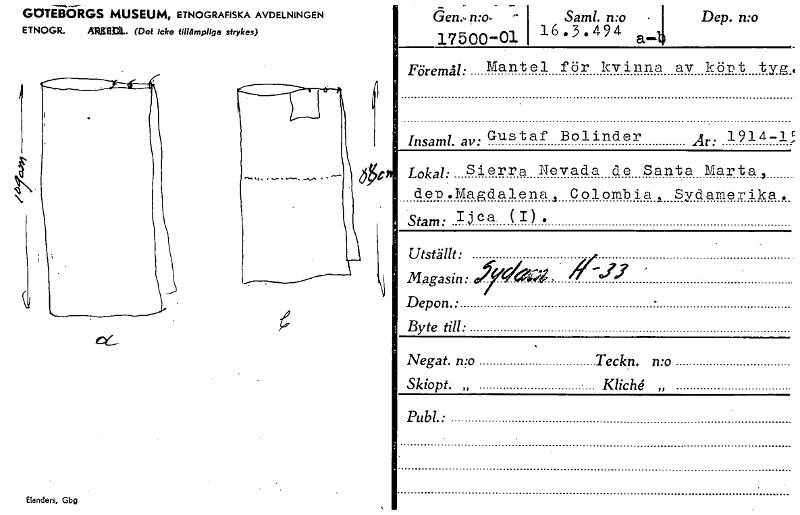 GÖTEBORGS MUSEUM, ETNOGRAFISKA AVDELNINGEN
ETNOGR. ARKEOL. (Det icke tillämpliga strykes)
109cm
88cm
a
b
Elanders, Gbg
Gen. n:o
17500-01
Saml. n:o
16.3.494 a-b
Dep. n:o
Föremål: Mantel för kvinna av köpt tyg.
Insaml. av: Gustaf Bolinder År: 1914-15
Lokal: Sierra Nevada de Santa Marta,
dep.Magdalena, Colombia, Sydamerika.
Stam: Ijca (I).
Utställt:
Magasin: Sydam H-33
Depon.:
Byte till:
Negat. n:o Teckn. n:o
Skiopt. „ Kliché „
Publ.: